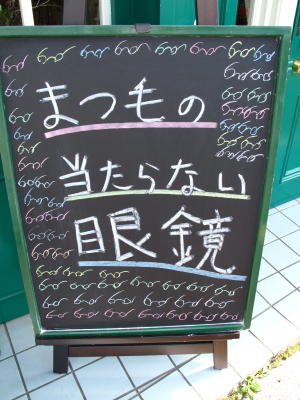 まつもの
当たらない
眼鏡